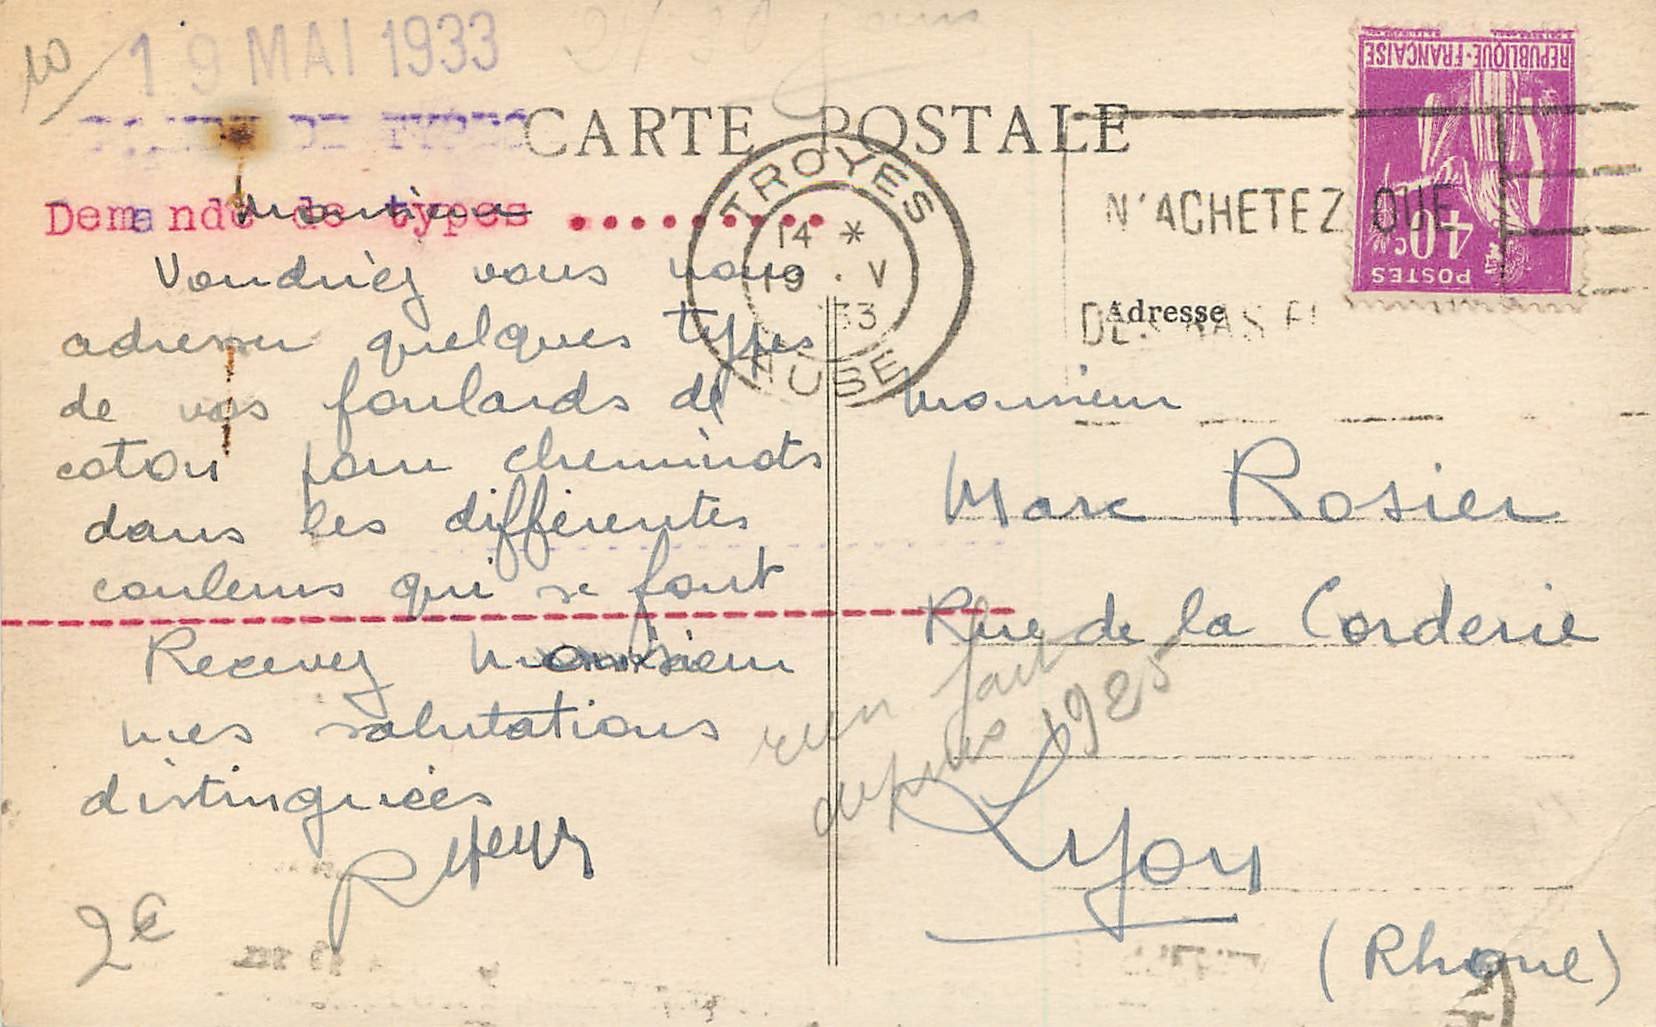 10
19 MAI 1933
2/30 jours
DE TYPES
CARTE POSTALE
Demande de types ..........
Monsieur
Voudriez vous nous
adresser quelques types
de vos foulards de
coton pour cheminots
dans les différentes
couleurs qui se font
Recevez Monsieur
mes salutations
distinguées
2€
TROYES
14 *
19 . V
33
AUBE
N'ACHETEZ QUE
DES BAS
REPUBLIQUE-FRANCAISE
40c
POSTES
Adresse
Monsieur
Marc Rosier
Rue de la Corderie
rien fait
depuis 1925
Lyon
(Rhone)